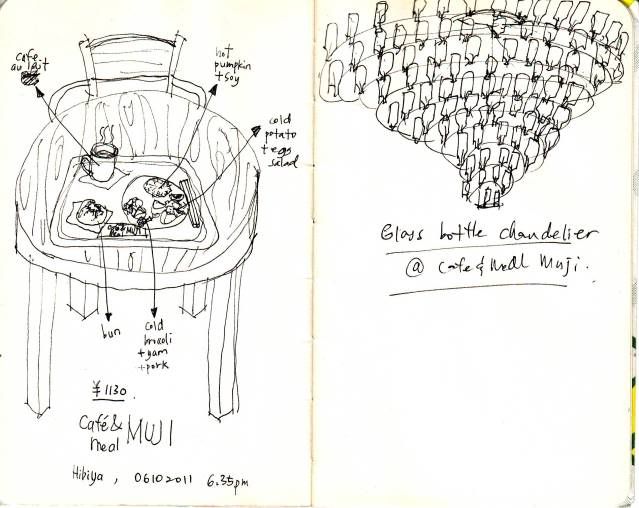 cafe
au lait
hot
pumpkin
+ soy
cold
potato
+ egg
salad
bun
cold
brocoli
+ yam
+ pork
¥1130
Café &
meal MUJI
Hibiya, 06102011 6.35pm
Glass bottle chandelier
@ cafe & meal Muji.